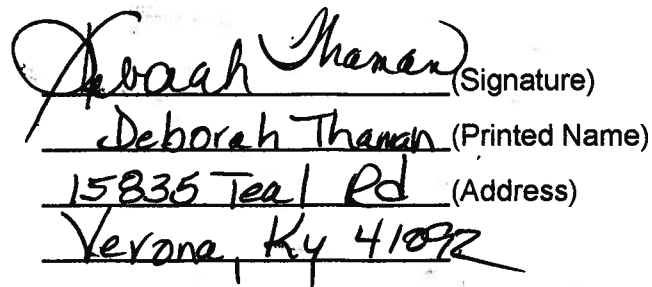 Deborah Thaman (Signature)
Deborah Thaman (Printed Name)
15835 Teal Rd (Address)
Verona, Ky 41092